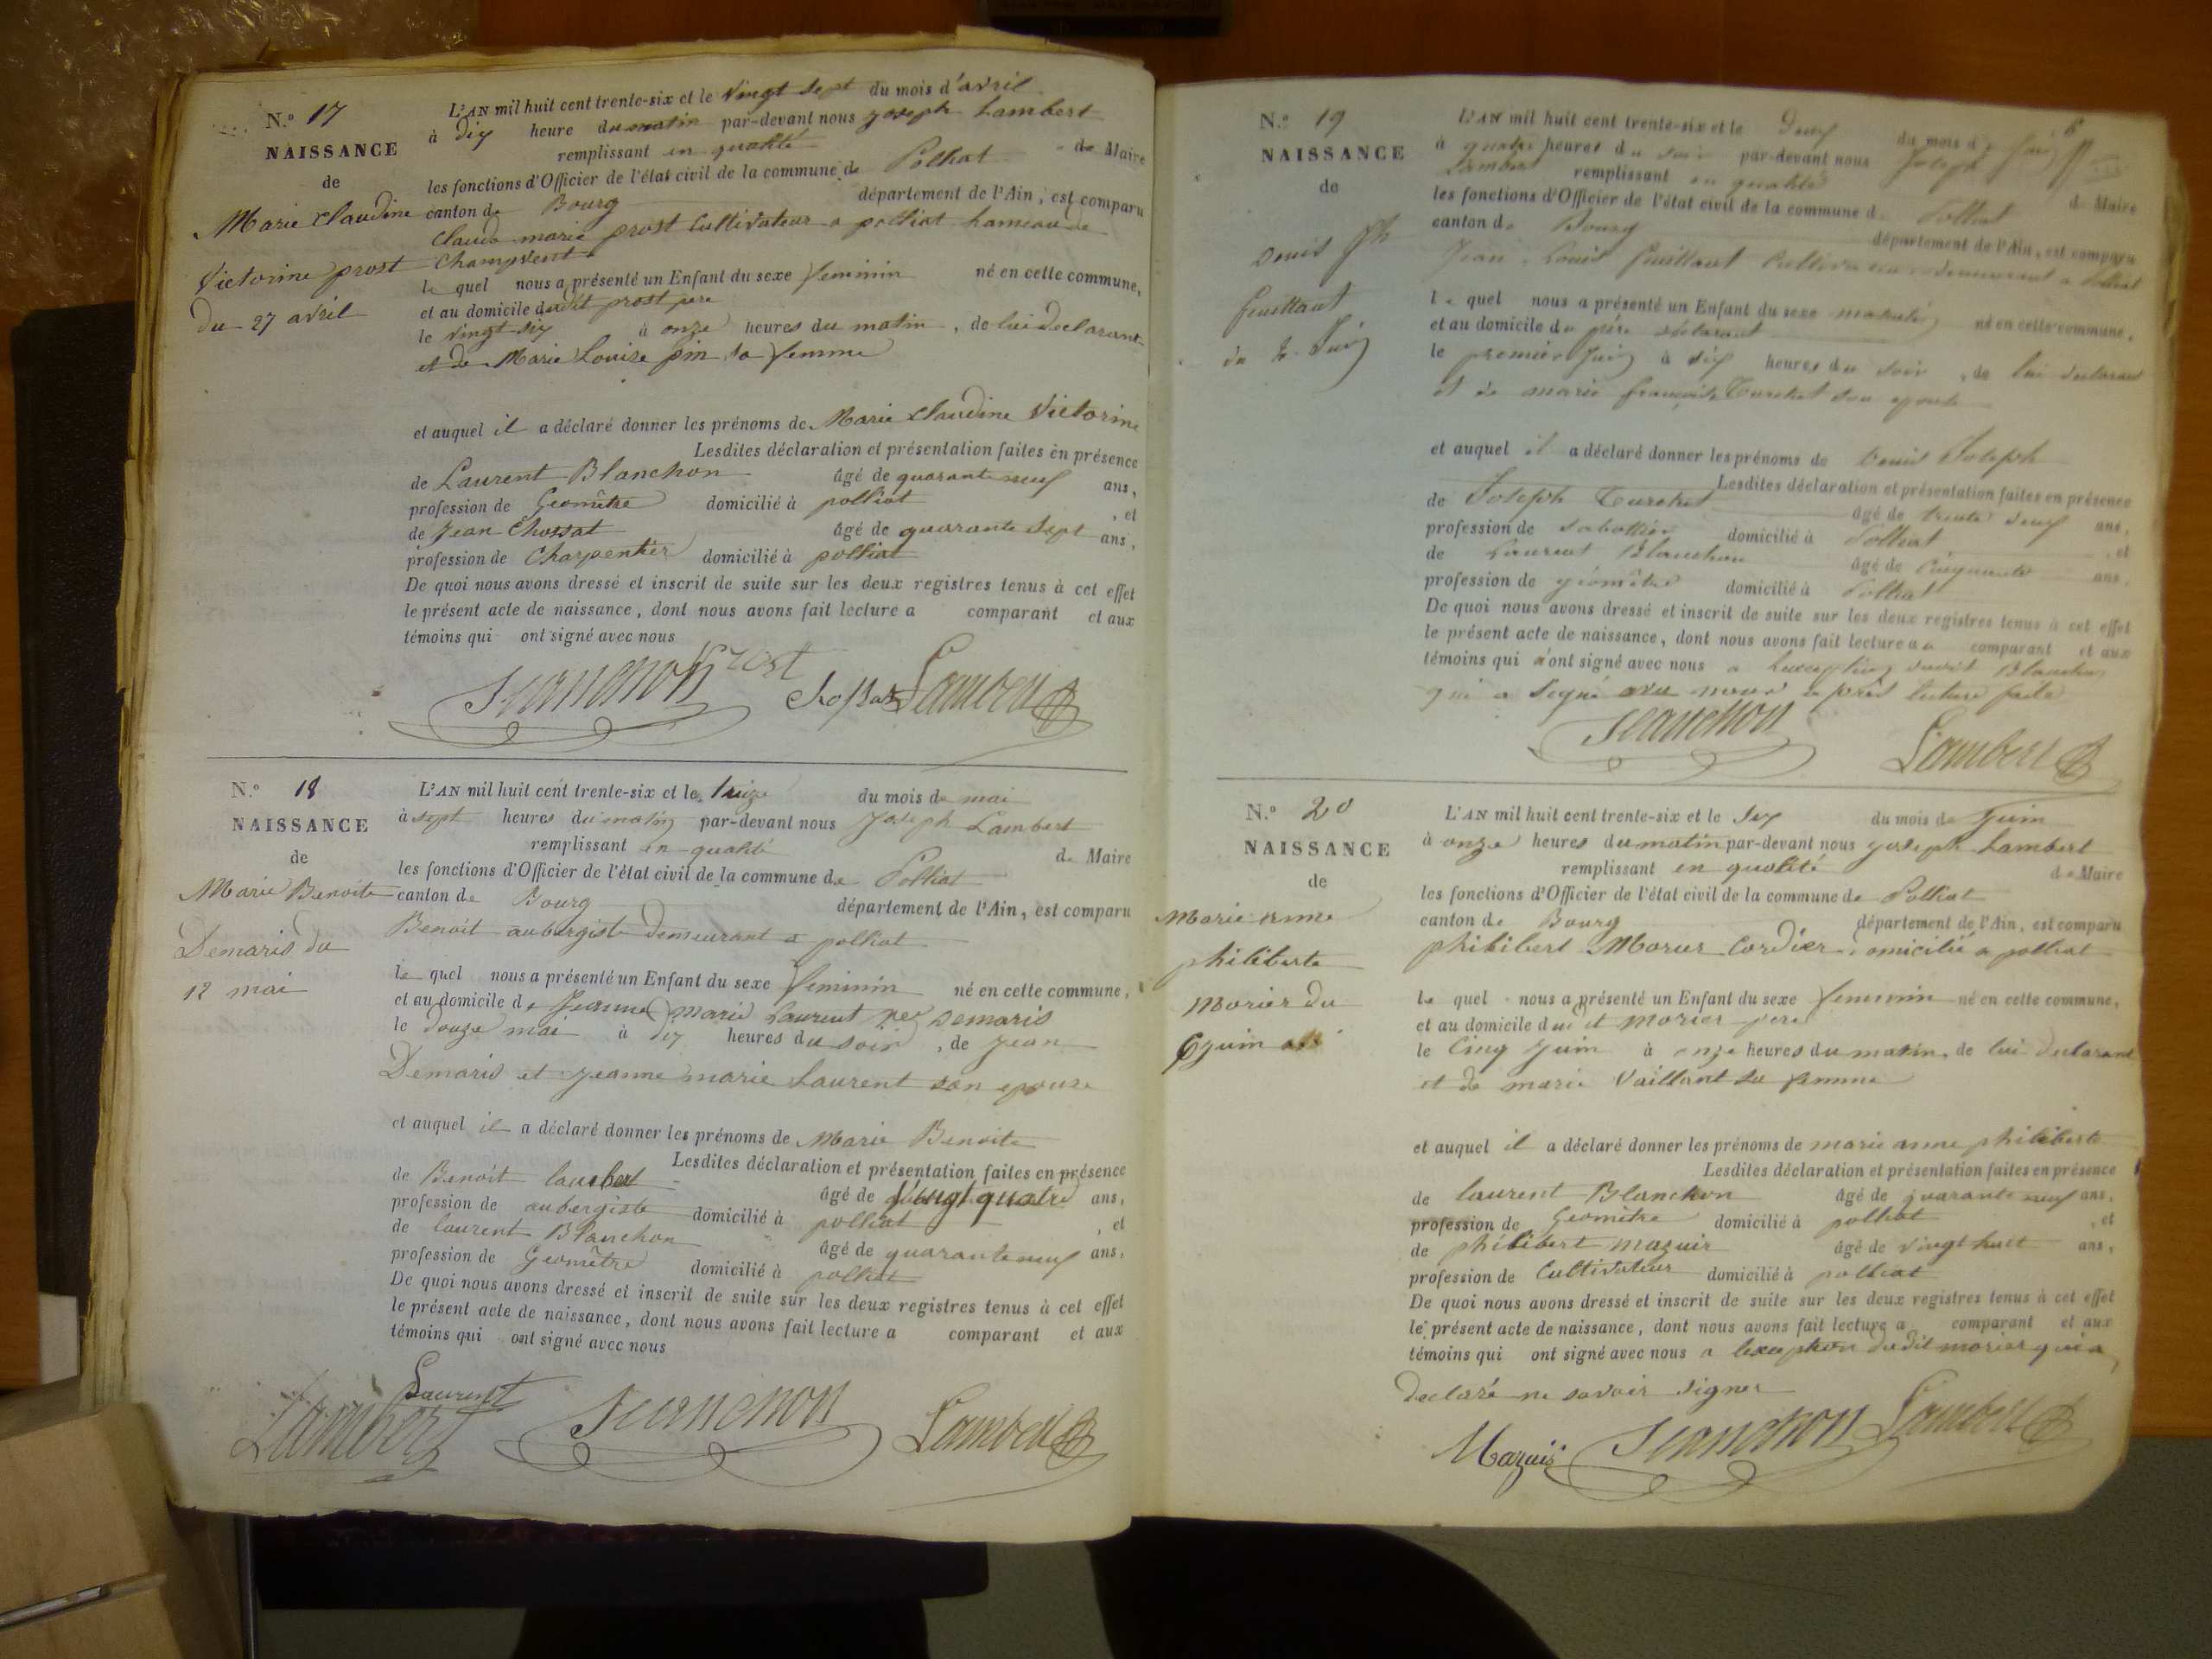 N.° 17
NAISSANCE
de
Marie Claudine
Victorine prost
du 27 avril
L'AN mil huit cent trente-six et le Vingt Sept du mois d'avril
à dix heure du matin par-devant nous joseph Lambert
remplissant en qualité de Maire
les fonctions d'Officier de l'état civil de la commune de Polliat
canton de Bourg département de l'Ain, est comparu
Claude marie prost Cultivateur a polliat hameau de
Champvent
le quel nous a présenté un Enfant du sexe feminin né en cette commune,
et au domicile dudit prost pere
le vingt six à onze heures du matin, de lui declarant
et de Marie Louise pin sa femme
et auquel il a déclaré donner les prénoms de Marie Claudine Victorine
Lesdites déclaration et présentation faites en présence
de Laurent Blanchon âgé de quarante neuf ans,
profession de Geomêtre domicilié à polliat, et
de Jean Chossat âgé de quarante Sept ans,
profession de Charpentier domicilié à polliat
De quoi nous avons dressé et inscrit de suite sur les deux registres tenus à cet effet
le présent acte de naissance, dont nous avons fait lecture a comparant et aux
témoins qui ont signé avec nous
Prost
Blanchon Chossat Lambert
N.° 18
NAISSANCE
de
Marie Benoite
Demaris du
12 mai
L'AN mil huit cent trente-six et le treize du mois de mai
à sept heures du matin par-devant nous Joseph Lambert
remplissant en qualité de Maire
les fonctions d'Officier de l'état civil de la commune de Polliat
canton de Bourg département de l'Ain, est comparu
Benoit aubergiste demeurant a polliat
le quel nous a présenté un Enfant du sexe feminin né en cette commune,
et au domicile de Jeanne marie Laurent Demaris
le douze mai à dix heures du soir, de Jean
Demaris et Jeanne marie Laurent son epouse
et auquel il a déclaré donner les prénoms de Marie Benoite
Lesdites déclaration et présentation faites en présence
de Benoit lambert âgé de vingt quatre ans,
profession de aubergiste domicilié à polliat, et
de laurent Blanchon âgé de quarante neuf ans,
profession de Geomêtre domicilié à polliat
De quoi nous avons dressé et inscrit de suite sur les deux registres tenus à cet effet
le présent acte de naissance, dont nous avons fait lecture a comparant et aux
témoins qui ont signé avec nous
Laurent
Lambert Blanchon Lambert
6
N.° 19
NAISSANCE
de
Louis Jh
Guillaut
du 2 Juin
L'AN mil huit cent trente-six et le Deux du mois de Juin
à quatre heures du soir par-devant nous Joseph
Lambert remplissant en qualité de Maire
les fonctions d'Officier de l'état civil de la commune de Polliat
canton de Bourg département de l'Ain, est comparu
Jean Louis Guillaut Cultivateur demeurant a Polliat
le quel nous a présenté un Enfant du sexe masculin né en cette commune,
et au domicile du père déclarant
le premier Juin à dix heures du soir, de lui declarant
et de marie françoise Turchet son epouse
et auquel il a déclaré donner les prénoms de Louis Joseph
Lesdites déclaration et présentation faites en présence
de Joseph Turchet âgé de trente deux ans,
profession de Sabottier domicilié à Polliat, et
de Laurent Blanchon âgé de Cinquante ans,
profession de géomètre domicilié à Polliat
De quoi nous avons dressé et inscrit de suite sur les deux registres tenus à cet effet
le présent acte de naissance, dont nous avons fait lecture au comparant et aux
témoins qui n'ont signé avec nous a Lexception dudit Blanchon
qui a Signé avec nous après lecture faite
Blanchon Lambert
N.° 20
NAISSANCE
de
Marie anne
philiberte
Morier du
6 juin
L'AN mil huit cent trente-six et le Six du mois de Juin
à onze heures du matin par-devant nous joseph Lambert
remplissant en qualité de Maire
les fonctions d'Officier de l'état civil de la commune de Polliat
canton de Bourg département de l'Ain, est comparu
philibert Morier Cordier domicilié a polliat
le quel nous a présenté un Enfant du sexe feminin né en cette commune,
et au domicile dudit Morier pere
le Cinq Juin à onze heures du matin, de lui declarant
et de marie Vaillant sa femme
et auquel il a déclaré donner les prénoms de marie anne philiberte
Lesdites déclaration et présentation faites en présence
de laurent Blanchon âgé de quarante neuf ans,
profession de Geomêtre domicilié à polliat, et
de philibert mazuir âgé de vingt huit ans,
profession de Cultivateur domicilié à polliat
De quoi nous avons dressé et inscrit de suite sur les deux registres tenus à cet effet
le présent acte de naissance, dont nous avons fait lecture a comparant et aux
témoins qui ont signé avec nous a lexception dudit morier qui a
declaré ne savoir signer
Mazuir Blanchon Lambert